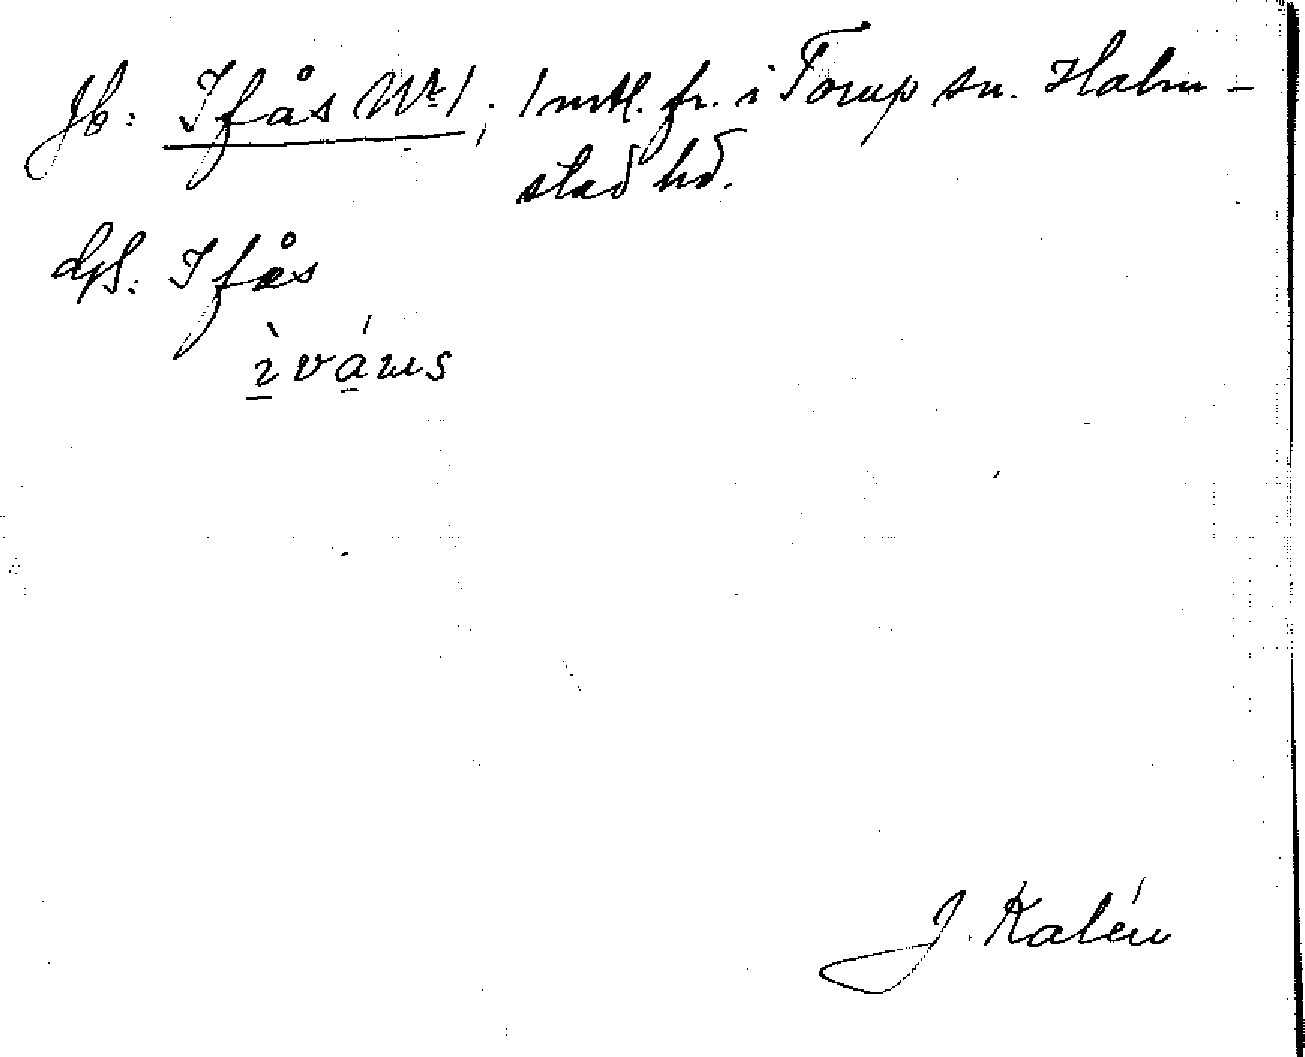 Jb: Ifås Nr 1; 1 mtl. fr. i Torup sn. Halm-
stad hd.
Gs: Ifås
ìváɯs
J. Kalén